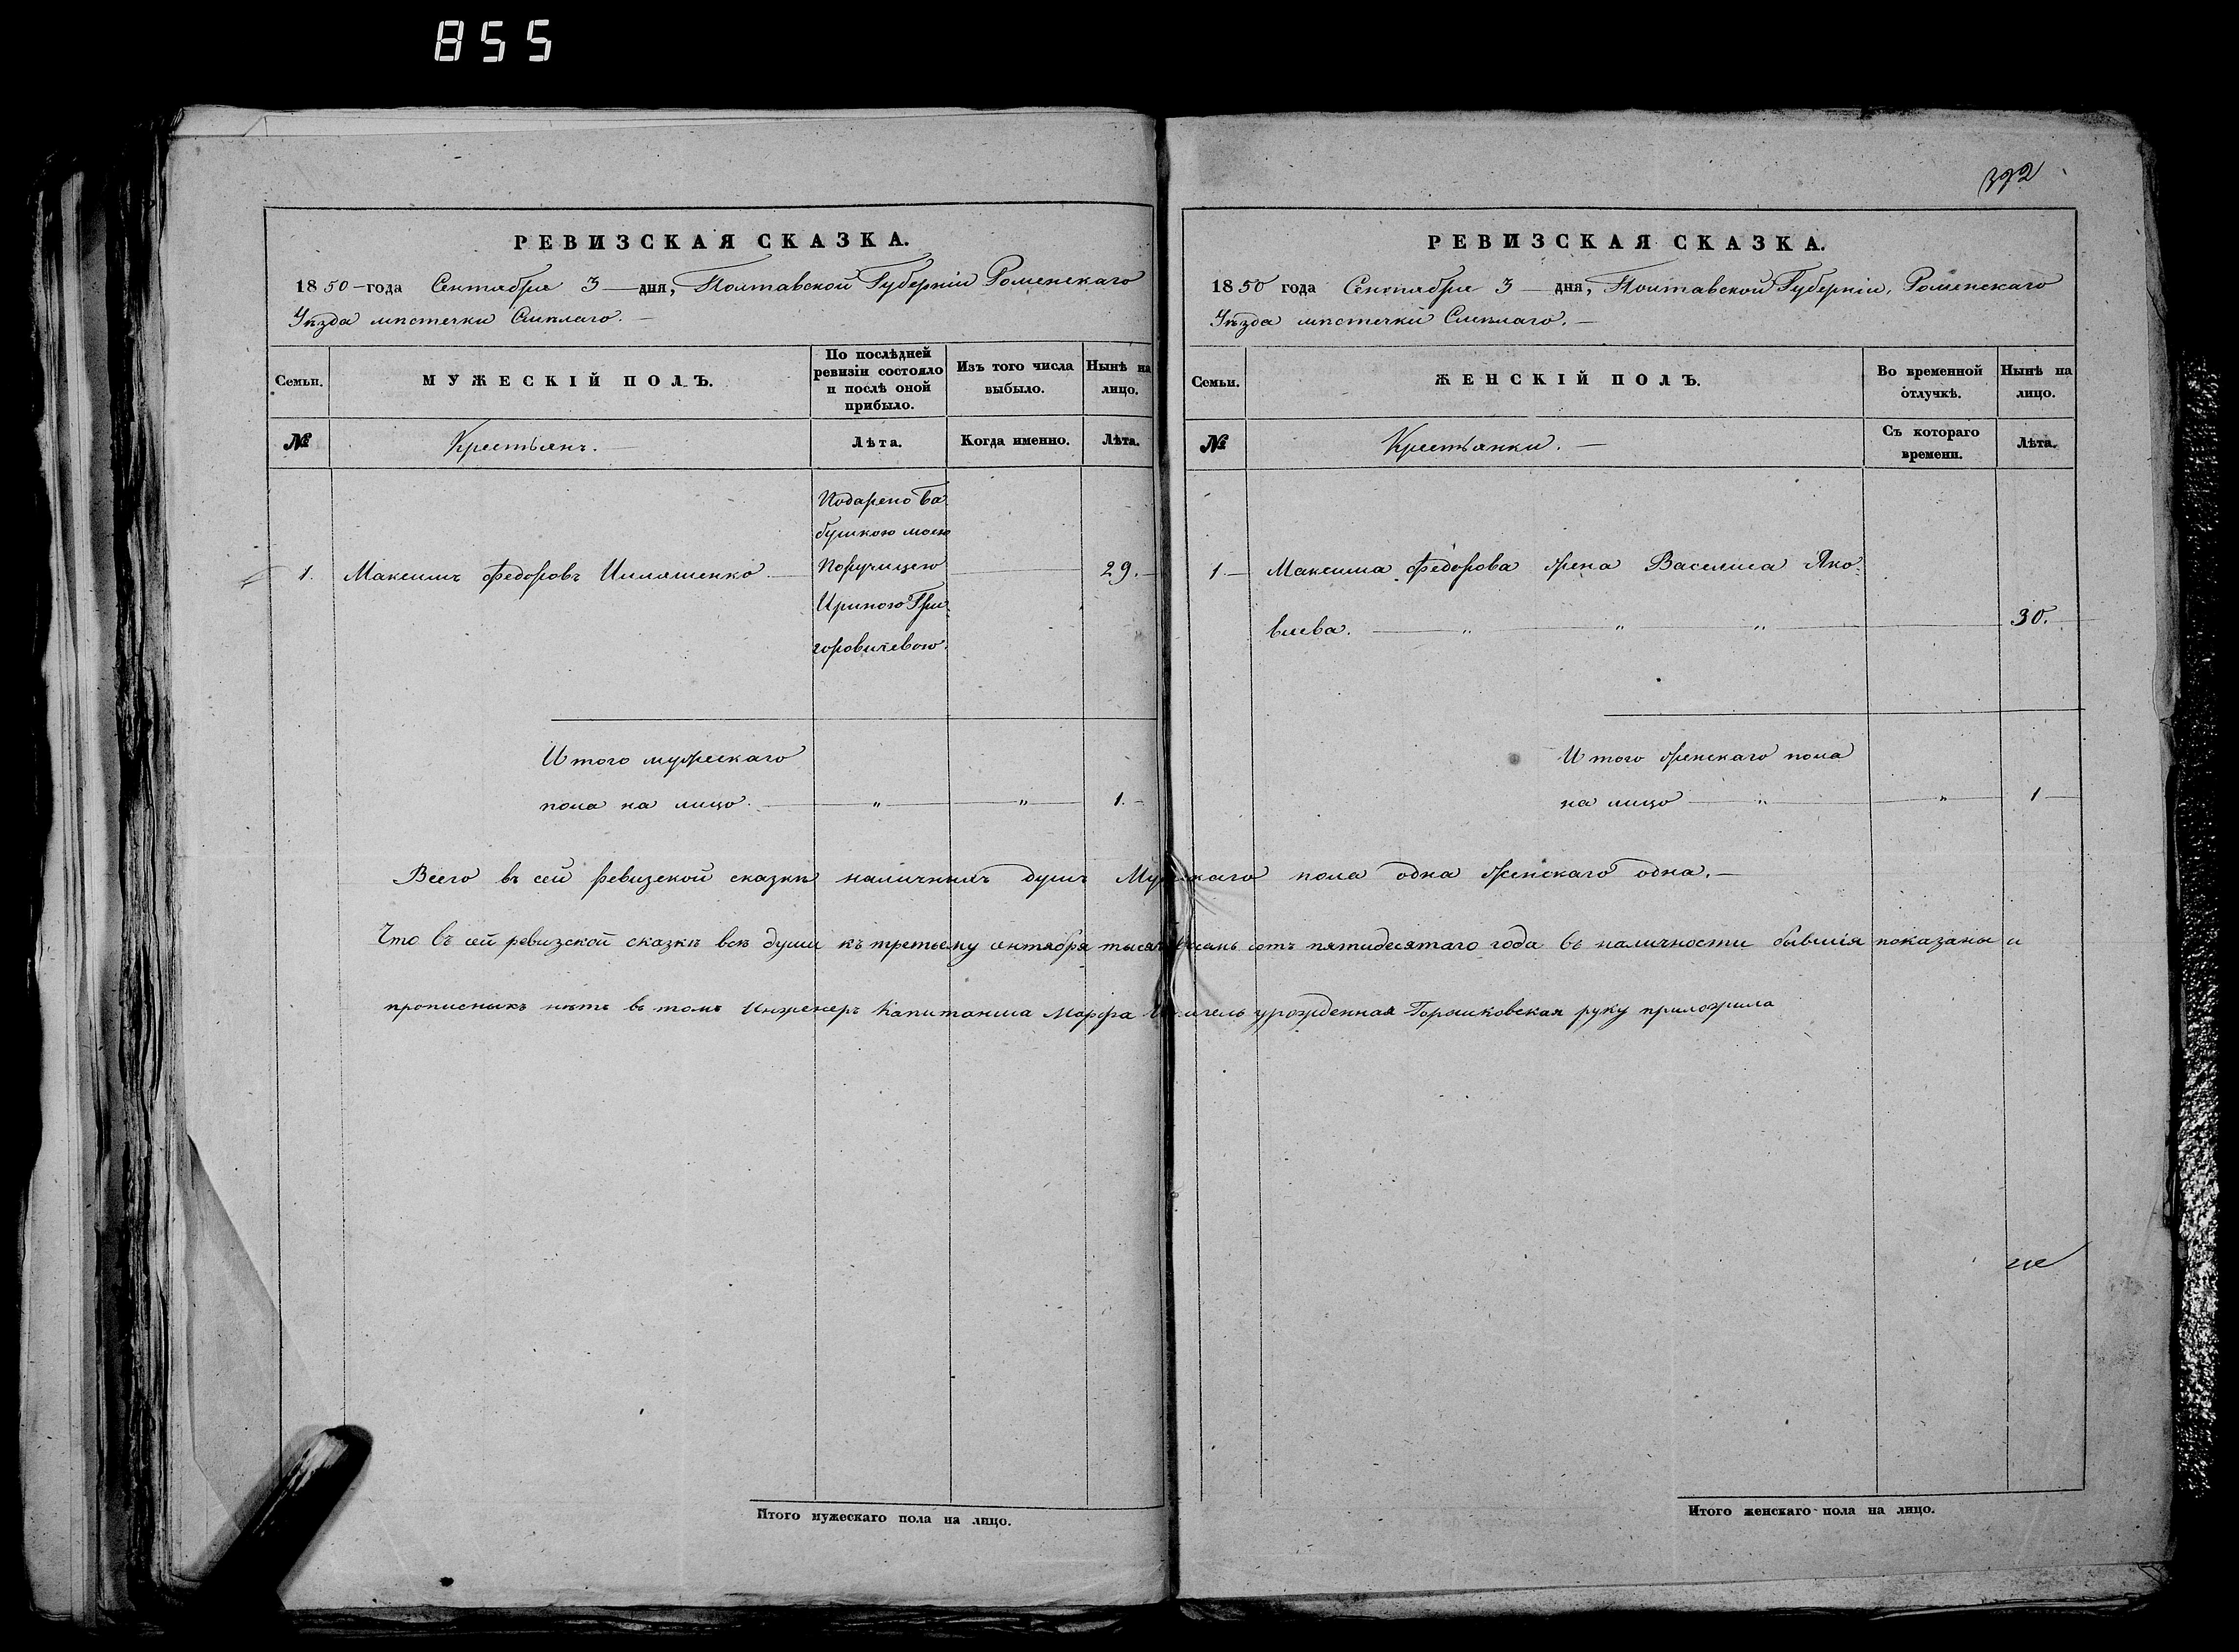 855
392
РЕВИЗСКАЯ СКАЗКА.
1850 года Сентября 3 дня, Полтавской Губерніи Роменскаго
Уѣзда мѣстечка Смѣлаго.
Семьи.
МУЖЕСКІЙ ПОЛЪ.
По послѣдней ревизіи состояло и послѣ оной прибыло.
Изъ того числа выбыло.
Нынѣ на лицо.
№
Крестьянъ.
Лѣта.
Когда именно.
Лѣта.
Подарено Ба
бушкою моею
Поручицею
Ириною Гри
горовичевою.
1. Максимъ Федоровъ 29.
Итого мужескаго
пола на лицо. " " 1.
РЕВИЗСКАЯ СКАЗКА.
1850 года Сентября 3 дня, Полтавской Губерніи, Роменскаго
Уѣзда мѣстечка Смѣлаго.
Семьи.
ЖЕНСКІЙ ПОЛЪ.
Во временной отлучкѣ.
Нынѣ на лицо.
№
Крестьянки.
Съ котораго времени.
Лѣта.
1. Максима Федорова жена Василиса Яко
влева. " " " 30.
Итого женскаго пола
на лицо " " 1
Всего въ сей ревизской сказкѣ наличныхъ душъ Мужескаго пола одна женскаго одна.
Что въ сей ревизской сказкѣ всѣ души къ третьему сентября тысяча восемь сотъ пятидесятаго года въ наличности бывшія показаны и
прописныхъ нѣтъ въ томъ Инженеръ Капитанша Марфа урожденная Горшковская руку приложила
Итого мужескаго пола на лицо.
Итого женскаго пола на лицо.